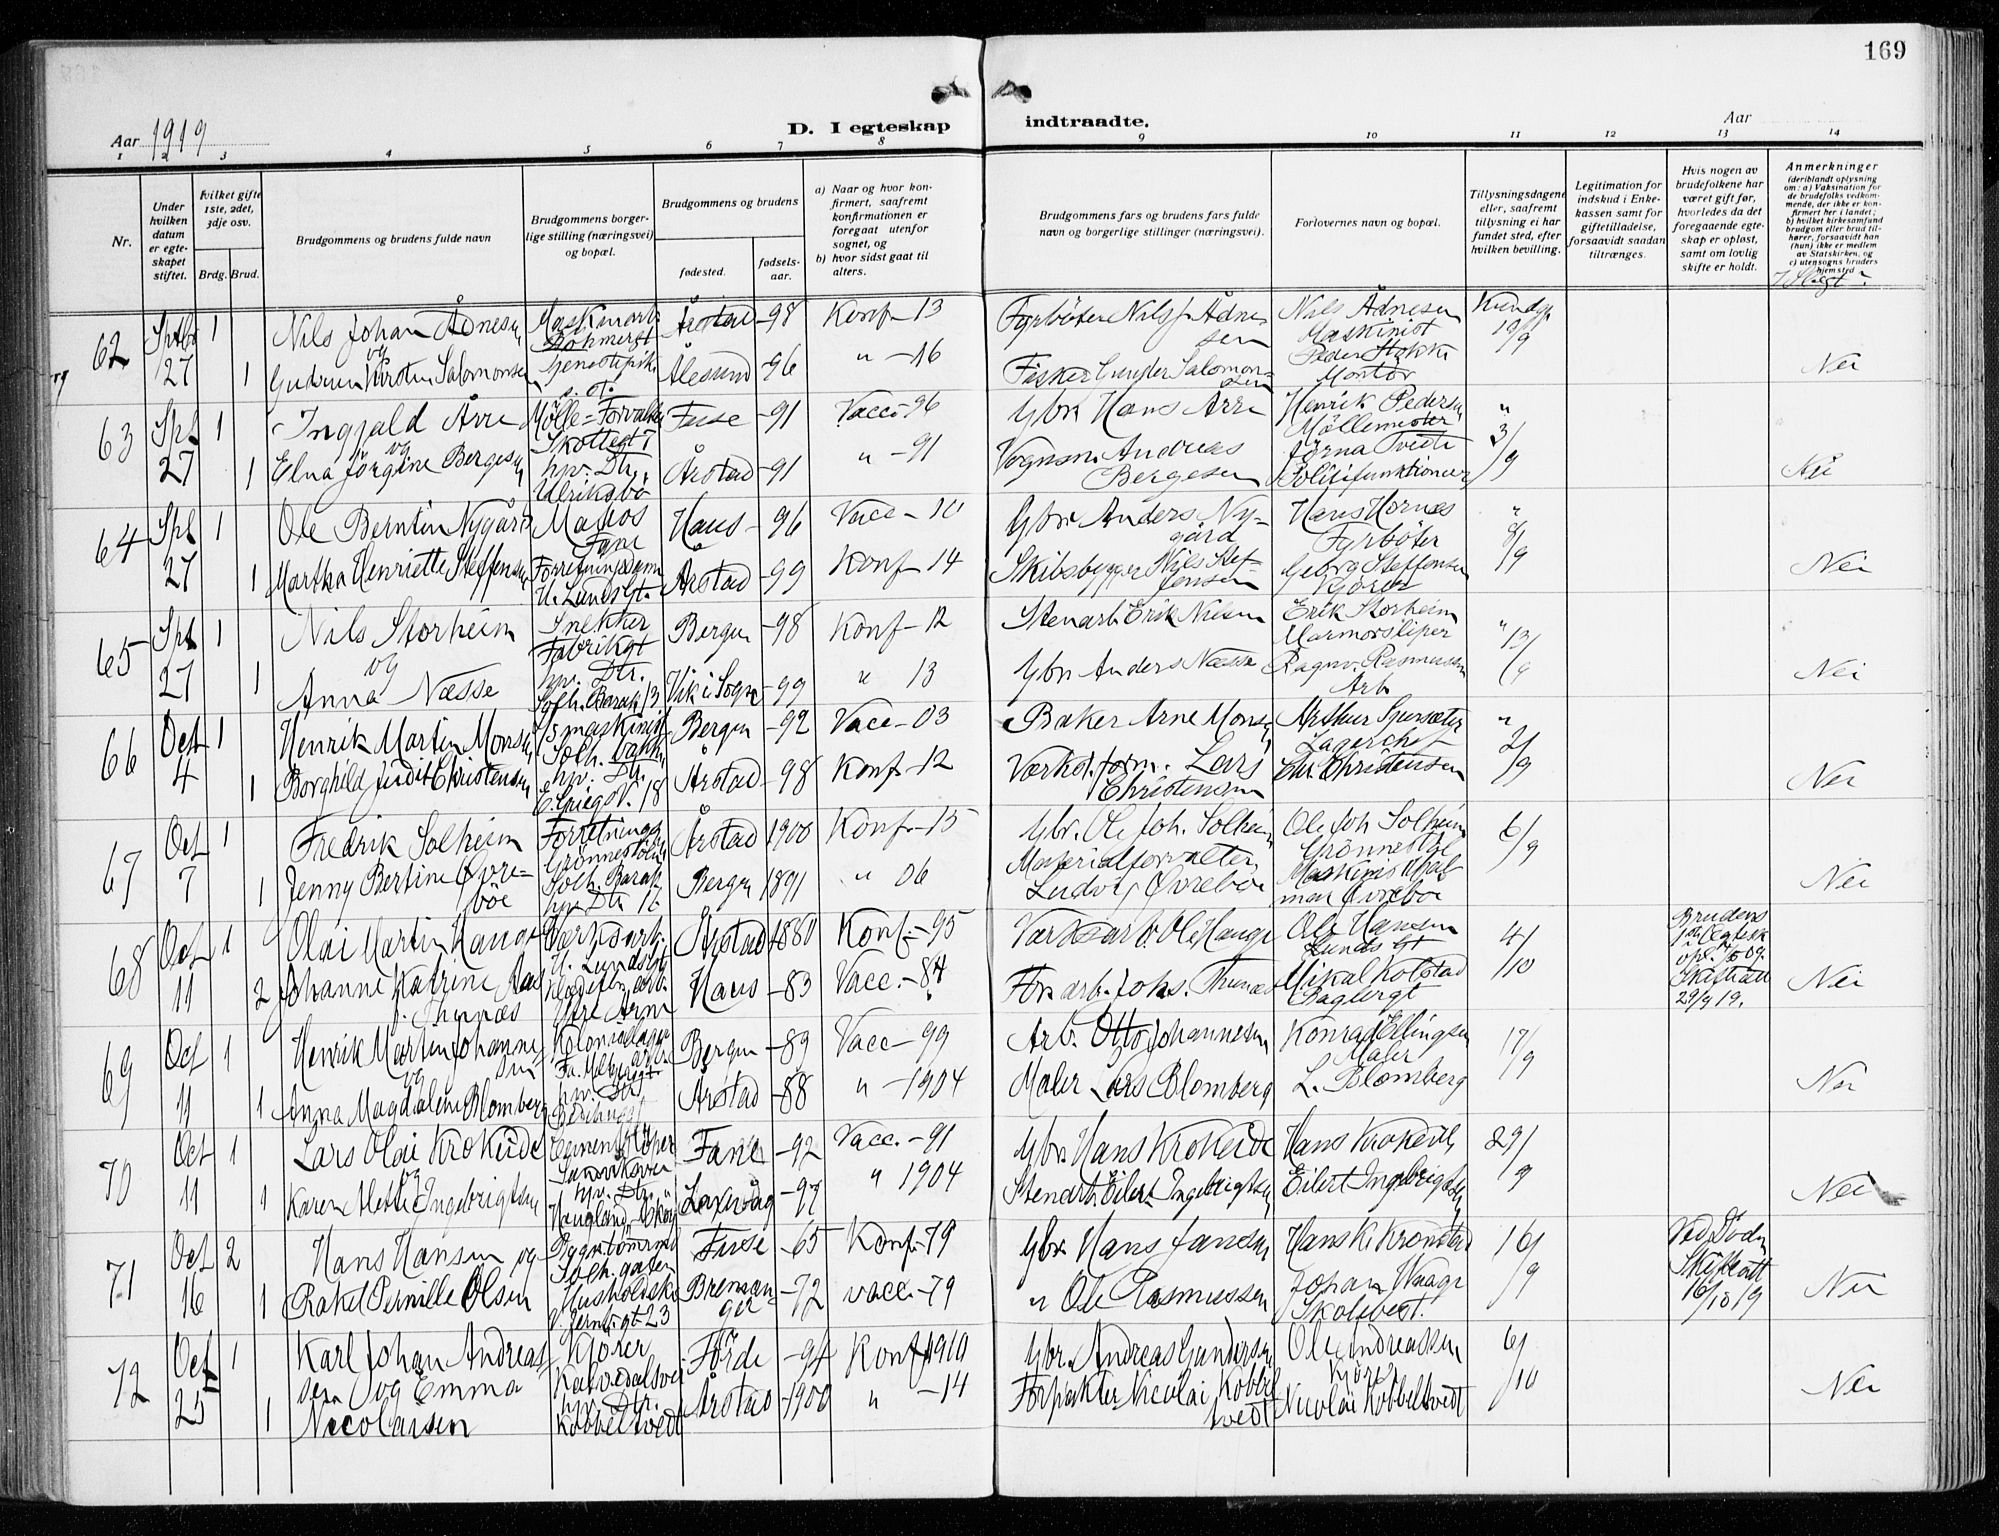 169
Aar 1919
D. I egteskap indtraadte.
Aar
1 2 3 4 5 6 7 8 9 10 11 12 13 14
Nr.
Under hvilken datum er egteskapet stiftet.
Hvilket gifte 1ste, 2det, 3dje osv.
Brdg. Brud.
Brudgommens og brudens fulde navn
Brudgommens borgerlige stilling (næringsvei) og bopæl.
Brudgommens og brudens
fødested.
fødselsaar.
a) Naar og hvor konfirmert, saafremt konfirmationen er foregaat utenfor sognet, og
b) hvor sidst gaat til alters.
Brudgommens fars og brudens fars fulde navn og borgerlige stillinger (næringsvei).
Forlovernes navn og bopæl.
Tillysningsdagene eller, saafremt tillysning ei har fundet sted, efter hvilken bevilling.
Legitimation for indskud i Enkekassen samt for giftetilladelse, forsaavidt saadan tiltrænges.
Hvis nogen av brudefolkene har været gift før, hvorledes da det foregaaende egteskap er opløst, samt om lovlig skifte er holdt.
Anmerkninger (deriblandt oplysning om: a) Vaksination for de brudefolks vedkommende, der ikke er konfirmert her i landet; b) hvilket kirkesamfund brudgom eller brud tilhører, forsaavidt han (hun) ikke er medlem av Statskirken, og c) utensogns bruders hjemsted
I Slegt
62 Sptbr 27 1 Nils Johan Ådnesen Maskinarb. Årstad -98 Konf - 13 Fyrbøter Nils J. Ådnesen Nils Ådnesen Maskinist Kundg. 19/9
og
1 Gudrun Kirstin Salomonsen Tjenestepike s. st. Ålesund -96 " -16 Fisker Salomonsen Peder Montør Nei
63 Spt 27 1 Ingjald Årre Mølle-Forvalter Fuse -91 Vacc. -96 Gbr. Hans Årre Henrik Pedersen Møllemester " 3/9
og
1 Elna Jørgine Bergesen hpv. Dtr. Ulriksbø Årstad -91 " -91 Vognm. Andreas Bergesen Jørna Tvedt Politifunktioner Nei
64 Spt 27 1 Ole Berntin Nygård Matros Fane Haus -96 Vacc - 10 Gbr. Anders Nygård Hans Hornæs Fyrbøter " 8/9
1 Martha Henriette Steffensen Forretningsdame H. Lunds Gt. Årstad -99 Konf - 14 Skibsbygger Nils Steffensen Georg Steffensen Kjører Nei
65 Spt 27 1 Nils Storheim Snekker Fabrikgt Bergen -98 Konf - 12 Stenarb. Erik Nilsen Erik Storheim Marmorsliper " 13/9
og
1 Anna Næsse hpv. Dtr. Solh. Barak 13 Vik i Sogn -99 " 13 Gbr. Anders Næsse Ragnv. Rasmussen Arb. Nei
66 Oct 4 1 Henrik Martin Monsen Bergen -92 Vacc - 03 Baker Arne Monsen Arthur Lagerchef " 2/9
1 Borghild Judit Christensen hpv. Dtr. E. Griegs V. 18 Årstad -98 Konf - 12 Værkst. form. Lars Christensen Chr. Christensen Nei
67 Oct 7 1 Fredrik Solheim Forretnings Årstad 1900 Konf - 15 Gbr. Ole Joh. Solheim Ole Joh Solheim 6/9
1 Jenny Bertine Øvrebøe Solh. Barak hpv. Dtr 17 Bergen 1891 " 06 Materialforvalter Ludvig Øvrebøe Maskinist Øvrebøe Nei
68 Oct 11 1 Olai Martin Hauge H. Lundsgt Årstad 1880 Konf. - 95 Værksarb. Ole Hauge Ole Hansen Lunds Gt 4/10 Brudens
2 Johanne Katrine f. Thunæs Øvre Arna Haus -83 Vacc. - 84 Johs. Thunæs Mikal Kolstad Skifteatt 29/9 19. Nei
69 Oct 11 1 Henrik Martin Johannesen Koloniallager arb. Bergen -89 Vacc - 99 Arb. Otto Johannesen Konrad Ellingsen Maler 17/9
og
1 Anna Magdalene Blomberg hpv. Dtr Årstad -88 " -1904 Maler Lars Blomberg L. Blomberg Nei
70 Oct 11 1 Lars Olai Krokeide Sandviksvei Fane -92 Vacc. - 91 Gbr. Hans Krokeide Hans Krokeide 29/9
og
1 Karen Mette Ingebrigtsen hpv. Dtr. Haugland Laxevåg -97 " 1904 Stenarb. Eilert Ingebrigtsen Eilert Ingebrigtsen Nei
71 Oct 16 2 Hans Hansen og Bygntømrm Solh. gaten Fuse -65 Konf. - 79 Gbr. Hans Jansen Hans K. Kronstad 16/9 Ved Død Skifteatt 16/10 19
1 Rakel Pernille Olsen Husholdske Bremanger -72 vacc. - 79 " Ole Rasmussen Johan Waage Skolebest. Nei
72 Oct 25 1 Karl Johan Andreassen og Kjører Kalvedalsvei Førde -94 Konf 1910 Gbr. Andreas Gundersen Ole Andreassen Kjører 6/10
1 Emma Nicolaisen hpv. Dtr. Kobbeltvedt Årstad -1900 " -14 Forpakter Nicolai Kobbeltvedt Nicolai Kobbeltvedt Nei